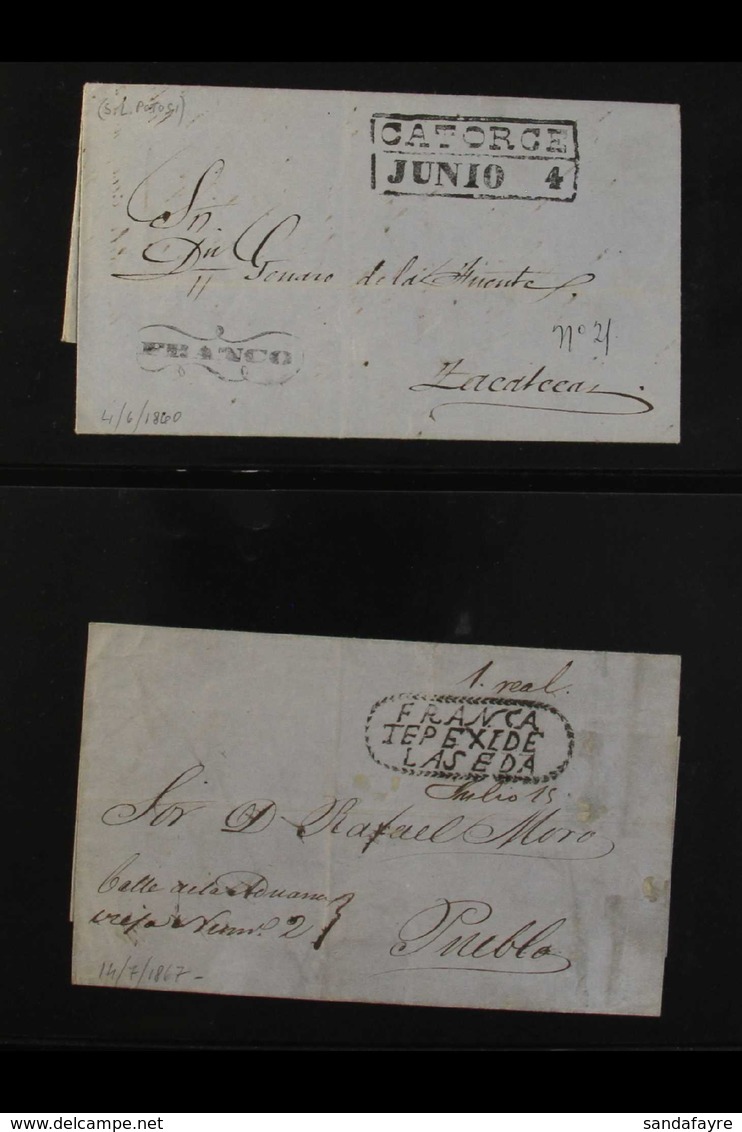 (S.L. POTOSI)
CATORCE
JUNIO 4
Sr
Dn Genaro de la Fuente
FRANCO
No 21
Zacatecas
4/6/1860
1. real.
FRANCA
TEPEXIDE
LASEDA
Julio 15
Sor D Rafael Moro
Calle de la Aduana
vieja Numo. 2
Puebla
14/7/1867-
delcampe.net
sandafayre